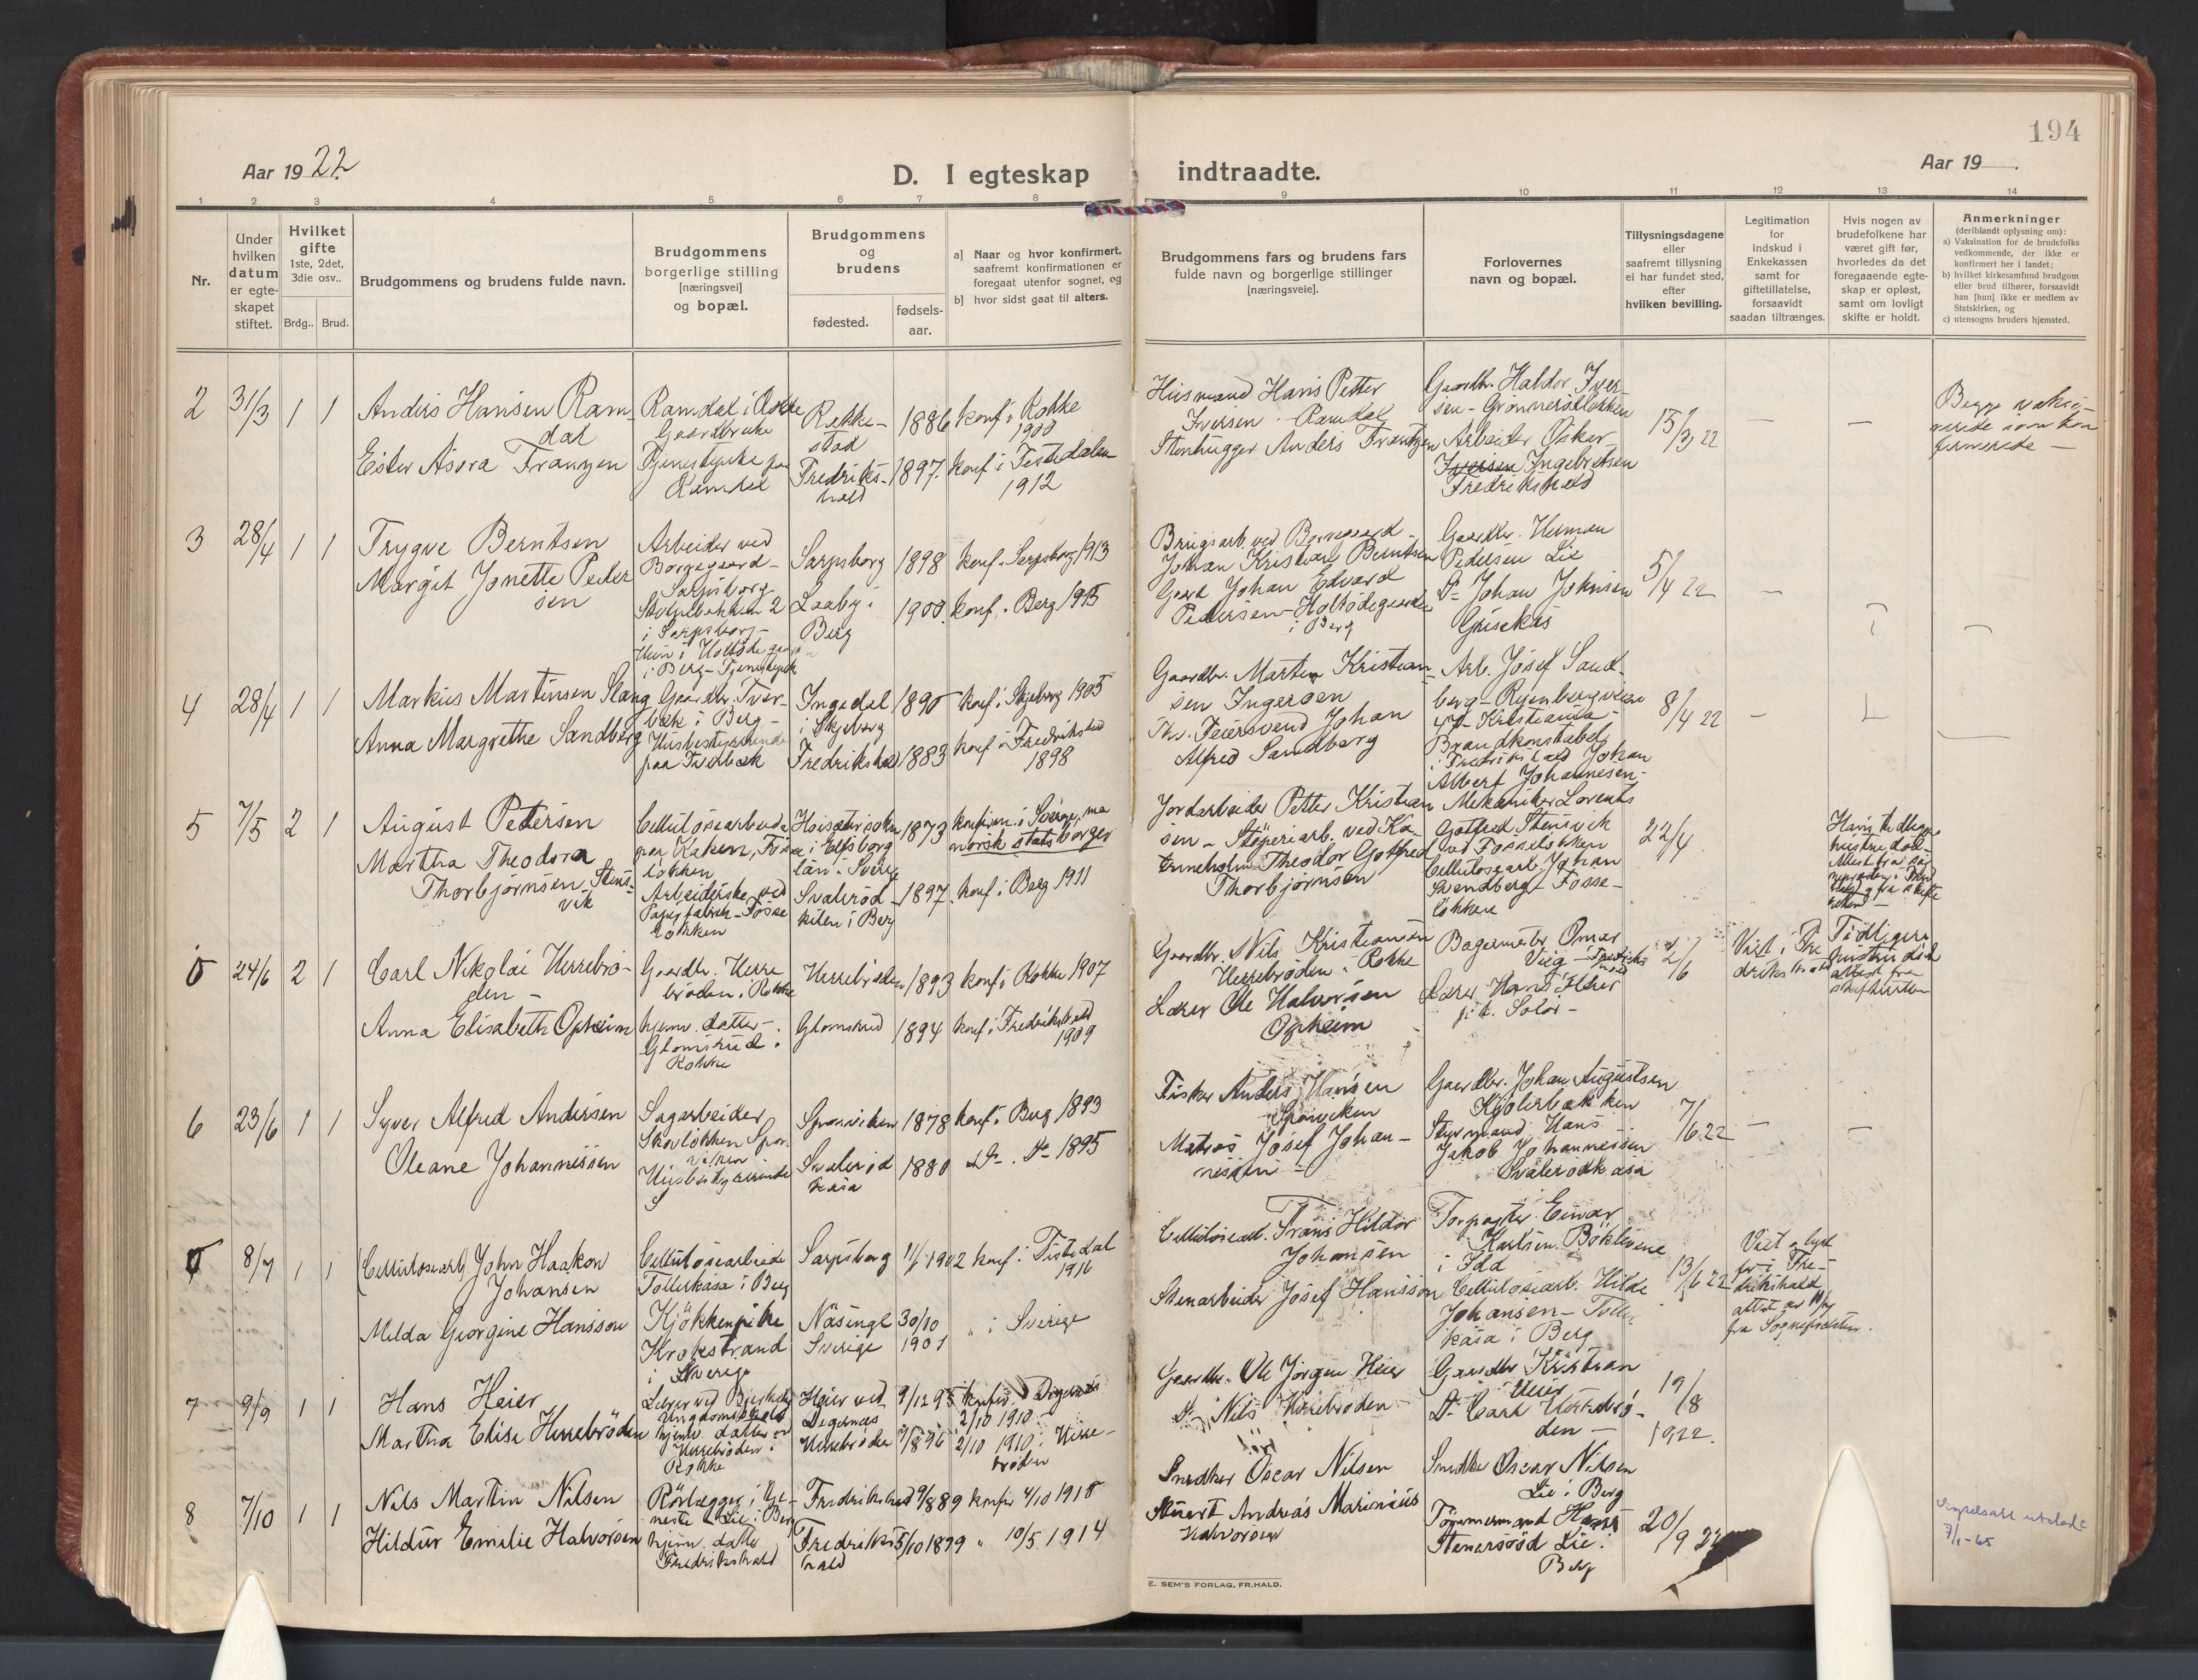 194
Aar 1922.
D. I egteskap indtraadte.
Aar 19
1 2 3 4 5 6 7 8 9 10 11 12 13 14
Nr.
Under
hvilken
datum
er egte-
skapet
stiftet.
Hvilket
gifte
1ste, 2det,
3die osv..
Brdg.. Brud.
Brudgommens og brudens fulde navn.
Brudgommens
borgerlige stilling
[næringsvei]
og bopæl.
Brudgommens
og
brudens
fødested.
fødsels-
aar.
a] Naar og hvor konfirmert,
saafremt konfirmationen er
foregaat utenfor sognet, og
b] hvor sidst gaat til alters.
Brudgommens fars og brudens fars
fulde navn og borgerlige stillinger
[næringsveie].
Forlovernes
navn og bopæl.
Tillysningsdagene
eller
saafremt tillysning
ei har fundet sted,
efter
hvilken bevilling.
Legitimation
for
indskud i
Enkekassen
samt for
giftetillatelse,
forsaavidt
saadan tiltrænges.
Hvis nogen av
brudefolkene har
været gift før,
hvorledes da det
foregaaende egte-
skap er opløst,
samt om lovligt
skifte er holdt.
Anmerkninger
(deriblandt oplysning om):
a) Vaksination for de brudefolks
vedkommende, der ikke er
konfirmert her i landet;
b) hvilket kirkesamfund brudgom
eller brud tilhører, forsaavidt
han [hun] ikke er medlem av
Statskirken, og
c) utensogns bruders hjemsted.
2 31/3 1 1
Anders Hansen Ram-
dal
Ester Asora Franzen
Ramdal i Rokke
Gaardbruker
Tjenestepike paa
Ramdal
Rakke-
stad
Fredriks-
hald
1886
1897.
konf. i Rokke
1900
konf. i Tistedalen
1912
Husmand Hans Petter
Iversen - Ramdal
Stenhugger Anders Frantzen
Gaardbr. Haldor Iver-
sen -
Arbeider Oskar
Iversen Ingebretsen
Fredrikshald
15/3 22
Begge vaksi-
nerede som kon
firmerede -
3 28/4 1 1
Trygve Berntsen
Margit Jonette Peder
sen
Arbeider ved
Borregaard -
Sarpsborg
i Sarpsborg -
i Berg - Tjenestepike
Sarpsborg
Laaby i
Berg
1898
1900.
konf. i Sarpsborg 1913
konf. i Berg 1915
Johan Kristian Berntsen
Gaardbr. Johan Edvard
Pedersen - Holtödegaarden
i Berg
Gaardbr. Herman
Pedersen Lie
Do Johan Johnsen
Grisekås
5/4 22
4 28/4 1 1
Markus Martinsen Slang
Anna Margrethe Sandberg
Gaardbr. Tver-
bæk i Berg -
Husbestyrerinde
paa Tverbæk
Ingedal
i Skjeberg
Fredrikshald
1890
1883
konf. i Skjeberg 1905
konf. i Fredrikshald
1898
Gaardbr. Martin Kristian-
sen Ingeröen
Feiersvend Johan
Alfred Sandberg
Arb. Josef Sand-
berg - Ryenbergveien
Kristiania -
Brandkonstabel
i Fredrikshald Johan
Albert Johannesen -
8/4 22
5 7/5 2 1
August Petersen
Martha Theodora
Thorbjørnsen Stens-
vik
Cellulosearbeider
paa Kaken, Fosse
løkken
Arbeiderske ved
Papirfabrik - Fosse
løkken
i Elfsborg
län i Sverige
Svalerød -
kilen i Berg
1873
1897.
konfirm. i Sverige, ma
norsk statsborger
konf. i Berg 1911
Jordarbeider Petter Kristian
sen - Støperiarb. ved Ka-
Theodor Gotfred
Thorbjørnsen
Mekaniker Lorents
Gotfred Stensvik
ved Fosseløkken
Cellulosearb. Johan
Svendberg - Fosse-
løkken
22/4
Hans tidligere
hustru död -
24/6 2 1
Carl Nikolai Herrebrö-
den -
Anna Elisabeth Opheim
Gaardbr. Herre
bröden i Rokke
hjemv. datter -
Glomsrud i
Rokke
Herrebröden
Glomsrud
1893
1894
konf. i Rokke 1907
konf. i Fredrikshald
1909
Gaardbr. Nils Kristiansen
Herrebröden i Rokke
Lærer Ole Halvorsen
Opheim
Bagermester Omar
Viig - Fredriks
hald
Lærer Hans Heier
p. t. Solør -
2/6
Viet i Fre
drikshald
Tidligere
hustru död
attest fra
skifteretten
6 23/6 1 1
Syver Alfred Andersen
Oleane Johannesen
Sagarbeider
Skovløkken Spon
viken
Husbestyrerinde
Sponviken
Svalerød
kåsa
1878
1880
konf. i Berg 1893
Do. Do 1895
Fisker Anders Hansen
Sponviken
Matros Josef Johan-
nesen -
Gaardbr. Johan Augustsen
Kjølerbækken
Styrmand Hans
Jakob Johannessen
Svalerødkåsa
7/6 22
8/7 1 1
(Cellulosearb.) John Haakon
Johansen
Milda Georgine Hansson
Cellulosearbeider
Tollerkåsa i Berg
Kjökkenpike
Krokstrand
i Sverige
Sarpsborg
Näsinge
Sverige
1902
30/10
1901
konf. i Tistedal
1916
" i Sverige
Cellulosearb. Frans Hildor
Johansen
Stenarbeider Josef Hansson
Forpagter Einar
Karlsen Böklevene
i Idd
Cellulosearb. Hilde
Johansen - Toller
kåsa i Berg
13/6 22
Viet o lyst
for i Fre-
drikshald
attest av
fra Sognepresten.
7 9/9 1 1
Hans Heier
Martha Elise Herrebröden
Lærer ved
Ungdomsskole
hjemv. datter
Herrebröden i
Rokke
Heier ved
Degernes
Herrebröden
9/12 95
7/8 96
konfir. i Degernes
2/10 1910 -
2/10 1910 i Herre-
bröden
Gaardbr. Ole Jörgen Heier
Do Nils Herrebröden
Gaardbr. Kristian
Heier
Do Carl Herrebrö-
den -
19/8
1922.
8 7/10 1 1
Nils Martin Nilsen
Hildur Emilie Halvorsen
Rörlægger i tje-
neste Lie i Berg
hjemv. datter
Fredrikshald
Fredrikshald
Fredriks
hald
9/8 89
5/10 1899
konfir 4/10 1910
" 10/5 1914
Snedker Oscar Nilsen
Stuert Andreas Marinius
Halvorsen
Snedker Oscar Nilsen
Lie i Berg
Tømmermand Hans
Stenersröd Lie i
Berg
20/9 22
Vigselsatt utstedt
7/1-65
E. SEM'S FORLAG, FR.HALD.